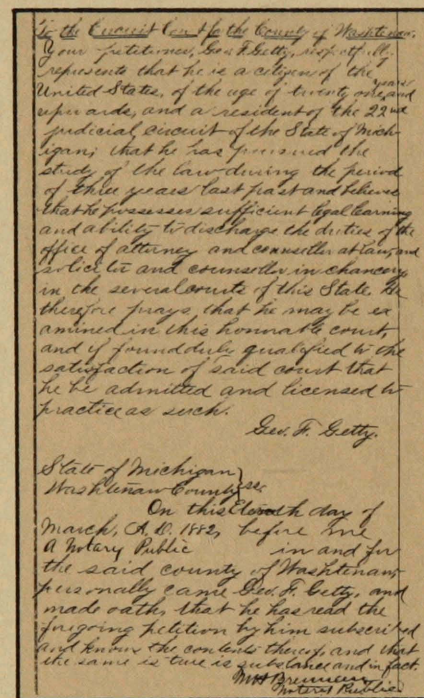 To the Circuit Court for the County of Washtenaw.
Your petitioner, Geo. F. Getty, respectfully
represents that he is a citizen of the
United States, of the age of twenty one years and
upwards, and a resident of the 22nd
judicial circuit of the State of Mich-
igan; that he has pursued the
study of the law during the period
of three years last past and believes
that he possesses sufficient legal learning
and ability to discharge the duties of the
office of attorney and counsellor at law, and
solicitor and counsellor in chancery
in the several courts of this State. He
therefore prays, that he may be ex
amined in this honorable court,
and if found duly qualified to the
satisfaction of said court that
he be admitted and licensed to
practice as such.
Geo. F. Getty.
State of Michigan }
Washtenaw County } ss.
On this Eleventh day of
March, A.D. 1882, before me
A Notary Public in and for
the said county of Washtenaw,
personally came Geo. F. Getty, and
made oath, that he has read the
foregoing petition by him subscribed
and knows the contents thereof, and that
the same is true is substance and in fact.
Notary Public